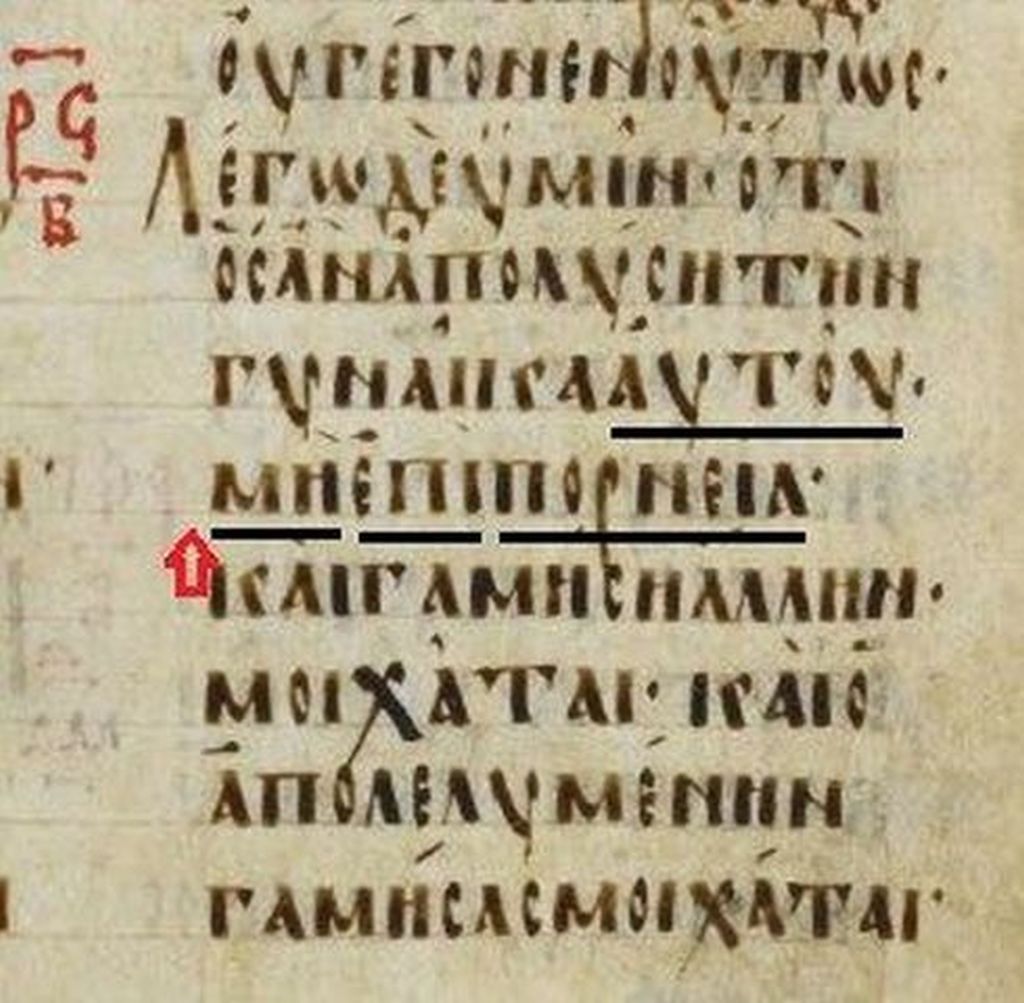 ΟΥΓΕΓΟΝΕΝΟΥΤΩϹ·
ΡϚ
Β
ΛΕΓΩΔΕΥΜΙΝ·ΟΤΙ
ΟϹΑΝΑΠΟΛΥϹΗΤΗΝ
ΓΥΝΑΙΚΑΑΥΤΟΥ·
ΜΗΕΠΙΠΟΡΝΕΙΑ·
ΚΑΙΓΑΜΗϹΗΑΛΛΗΝ·
ΜΟΙΧΑΤΑΙ·ΚΑΙΟ
ΑΠΟΛΕΛΥΜΕΝΗΝ
ΓΑΜΗϹΑϹΜΟΙΧΑΤΑΙ·